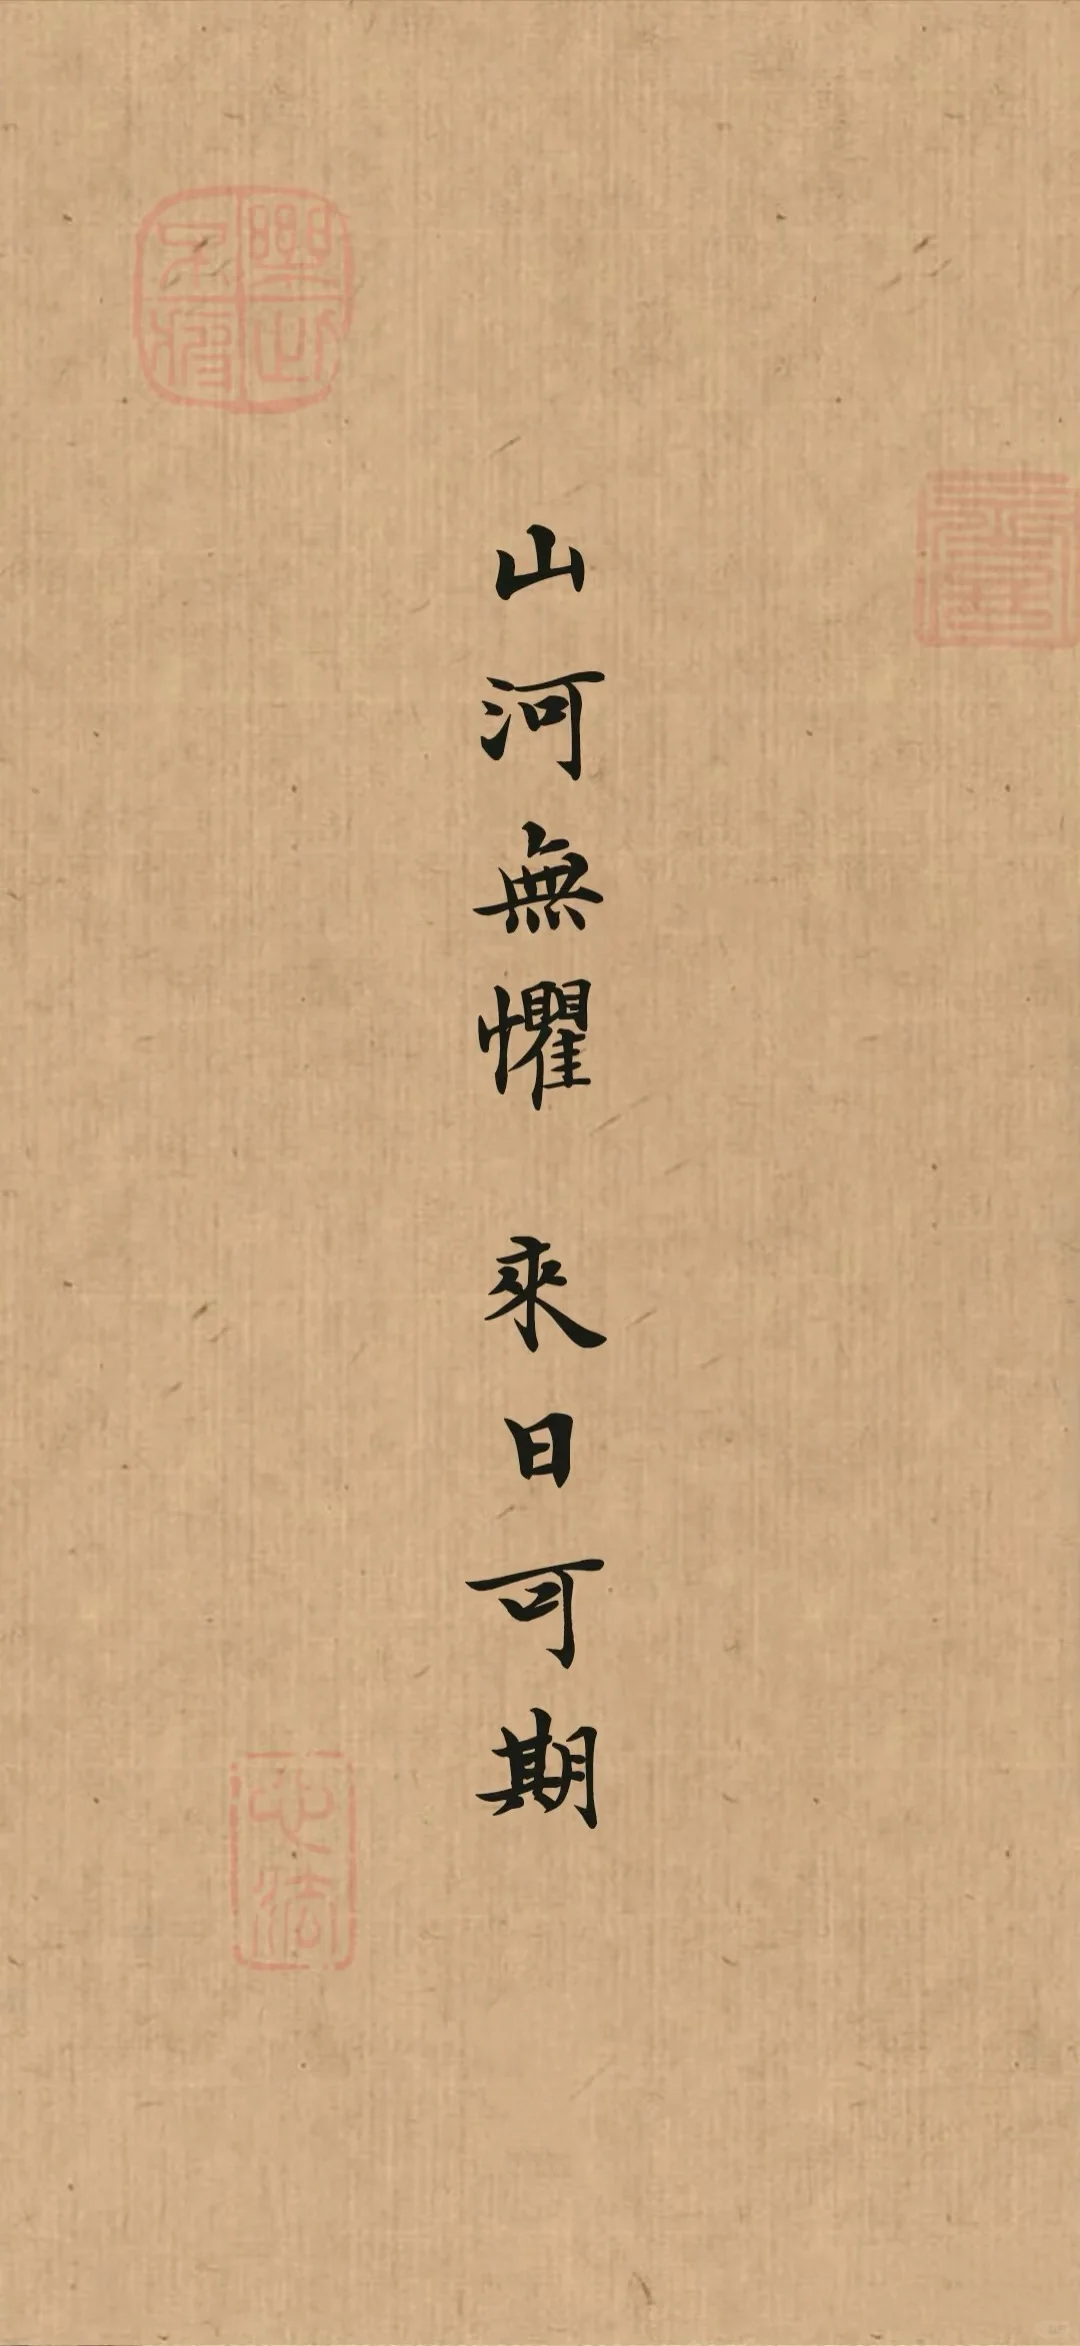 山河無懼 來日可期
心法